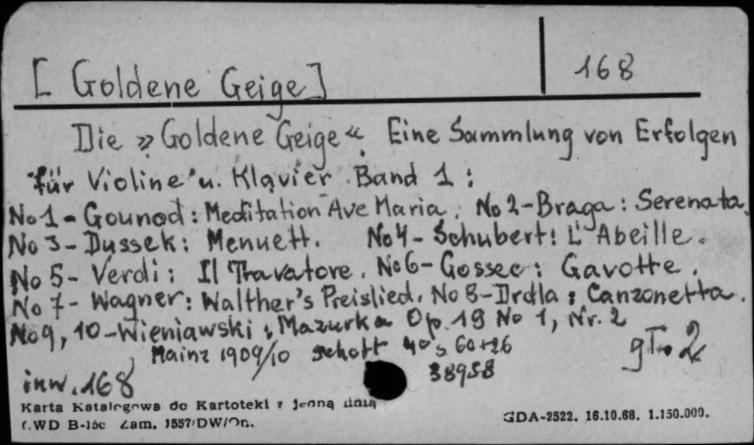 [ Goldene Geige ] 168
Die »Goldene Geige«. Eine Sammlung von Erfolgen
für Violine u. Klavier Band 1 :
No 1 - Gounod : Meditation Ave Maria. No 2 - Braga : Serenata
No 3 - Dussek : Menuett. No 4 - Schubert : L'Abeille.
No 5 - Verdi : Il Travatore. No 6 - Gossec : Gavotte.
No 7 - Wagner : Walther's Preislied. No 8 - Drdla : Canzonetta.
No 9, 10 - Wieniawski : Mazurka Op. 19 No 1, Nr. 2
Mainz 1909/10 Schott 4° s 60+26
gT. 2
inw. 168 38958
Karta Katalogowa do Kartoteki z jedną linią
C.WD B-15c Zam. 1557/DW/On.
GDA-2522. 16.10.68. 1.150.000.